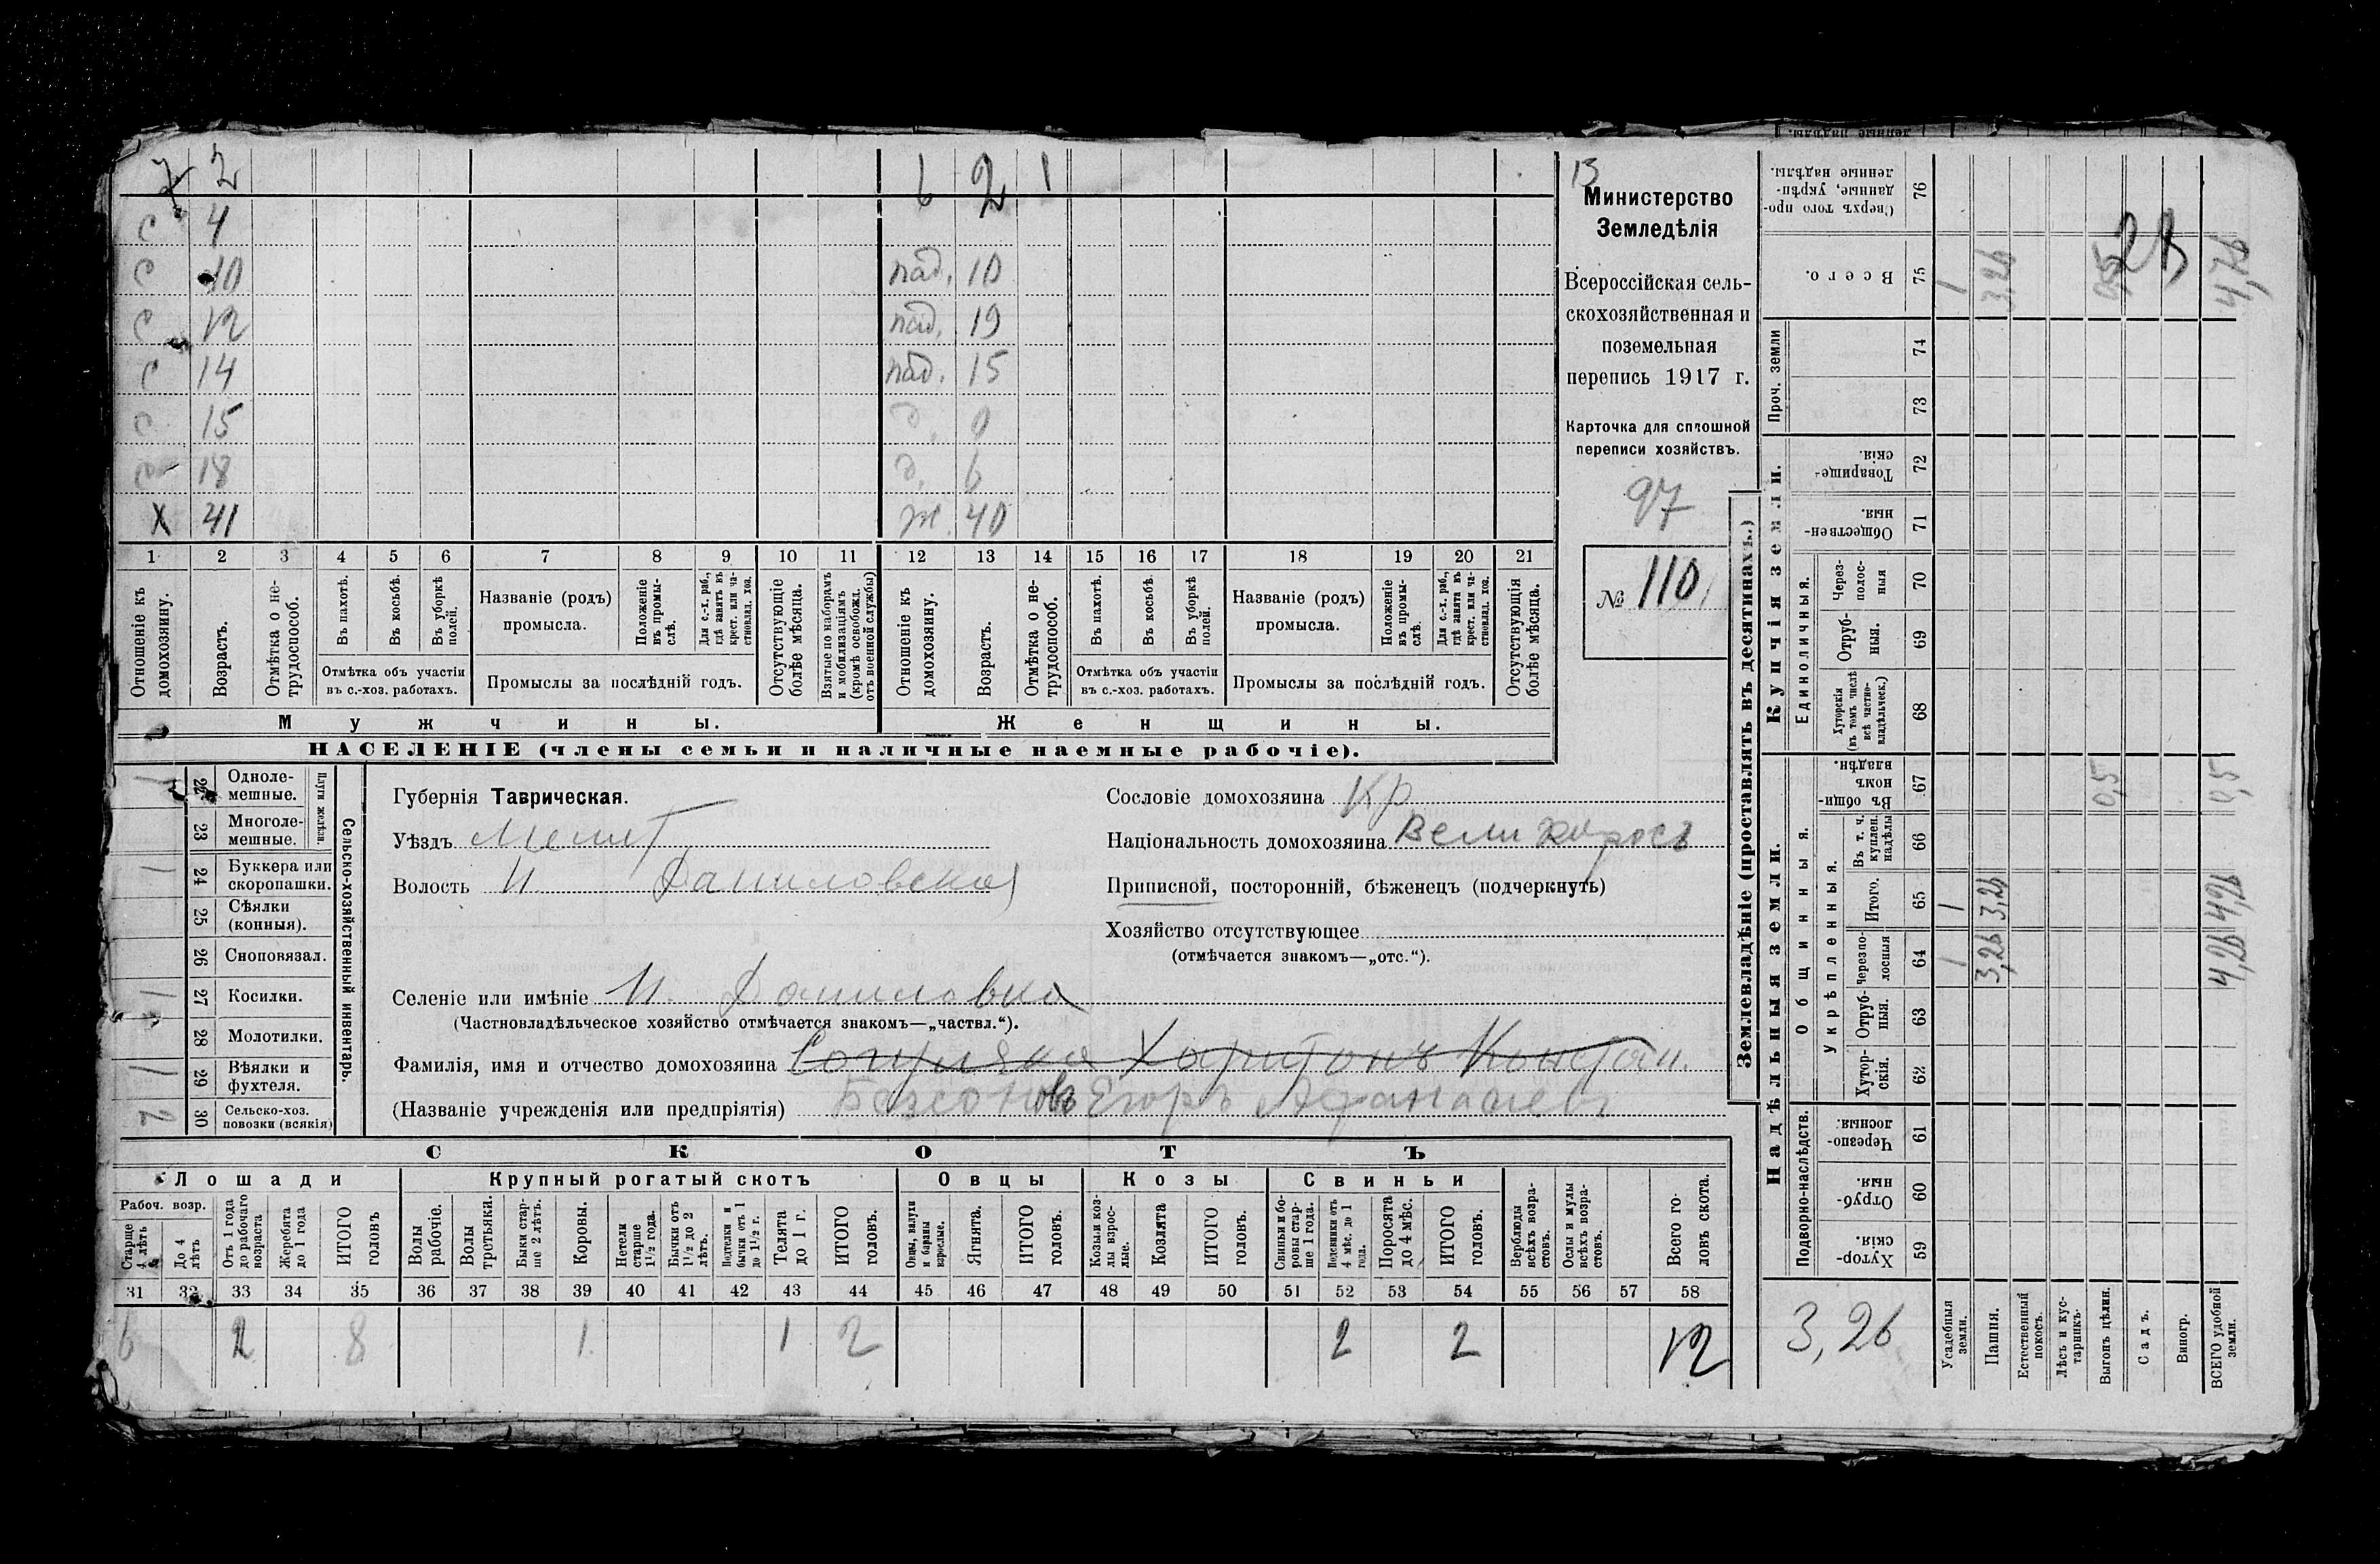 7 2 6 2 1
с 4
с 10 пад. 10
с 12 пад. 19
с 14 пад. 15
с 15 д. 9
с 18 д. 6
X 41 ж. 40
1 2 3 4 5 6 7 8 9 10 11 12 13 14 15 16 17 18 19 20 21
Отношеніе къ домохозяину.
Возрастъ.
Отмѣтка о нетрудоспособ.
Въ пахотѣ.
Въ косьбѣ.
Въ уборкѣ полей.
Отмѣтка объ участіи
въ с.-хоз. работахъ.
Названіе (родъ)
промысла.
Положеніе въ промыслѣ.
Для с.-х. раб., гдѣ занятъ въ крест. или частновлад. хоз.
Промыслы за послѣдній годъ.
Отсутствующіе болѣе мѣсяца.
Взятые по наборамъ и мобилизаціямъ (кромѣ освобожд. отъ военной службы)
Отношеніе къ домохозяину.
Возрастъ.
Отмѣтка о нетрудоспособ.
Въ пахотѣ.
Въ косьбѣ.
Въ уборкѣ полей.
Отмѣтка объ участіи
въ с.-хоз. работахъ.
Названіе (родъ)
промысла.
Положеніе въ промыслѣ.
Для с.-х. раб., гдѣ занята въ крест. или частновлад. хоз.
Промыслы за послѣдній годъ.
Отсутствующія болѣе мѣсяца.
Мужчины. Женщины.
НАСЕЛЕНІЕ (члены семьи и наличные наемные рабочіе).
13
Министерство
Земледѣлія
Всероссійская сель-
скохозяйственная и
поземельная
перепись 1917 г.
Карточка для сплошной
переписи хозяйствъ.
97
№ 110
Сельско-хозяйственный инвентарь.
Плуги желѣзн.
1 22 Одноле-
мешные.
23 Многоле-
мешные.
1 24 Буккера или
скоропашки.
25 Сѣялки
(конныя).
26 Сноповязал.
1 27 Косилки.
28 Молотилки.
1 29 Вѣялки и
фухтеля.
2 30 Сельско-хоз.
повозки (всякія)
Губернія Таврическая.
Уѣздъ Мелит
Волость Н Даниловская
Селеніе или имѣніе Н. Даниловка
(Частновладѣльческое хозяйство отмѣчается знакомъ—„частвл.“).
Фамилія, имя и отчество домохозяина Харитонъ Констан.
(Названіе учрежденія или предпріятія) Базсоновъ Егоръ Афанасіев
Сословіе домохозяина Кр
Національность домохозяина Великоросъ
Приписной, посторонній, бѣженецъ (подчеркнуть)
Хозяйство отсутствующее
(отмѣчается знакомъ—„отс.“).
СКОТЪ
Лошади Крупный рогатый скотъ Овцы Козы Свиньи
Рабоч. возр.
Старше 4 лѣтъ
До 4 лѣтъ
Отъ 1 года до рабочаго возраста
Жеребята до 1 года
ИТОГО головъ
Волы рабочіе.
Волы третьяки.
Быки старше 2 лѣтъ.
Коровы.
Нетели старше 1½ года.
Бычки отъ 1½ до 2 лѣтъ.
бычки отъ 1 до 1½ г.
Телята до 1 г.
ИТОГО головъ.
Овцы, валухи и бараны взрослые.
Ягнята.
ИТОГО головъ.
Козы и козлы взрослые.
Козлята
ИТОГО головъ.
Свиньи и боровы старше 1 года.
Подсвинки отъ 4 мѣс. до 1 года.
Поросята до 4 мѣс.
ИТОГО головъ.
Верблюды всѣхъ возрастовъ.
Ослы и мулы всѣхъ возрастовъ.
Всего головъ скота.
31 32 33 34 35 36 37 38 39 40 41 42 43 44 45 46 47 48 49 50 51 52 53 54 55 56 57 58
6 2 8 1 1 2 2 2 12
Землевладѣніе (проставлять въ десятинахъ.)
Надѣльныя земли. Купчія земли.
Подворно-наслѣдств.
Общинныя.
Укрѣпленныя.
Единоличныя.
Проч. земли
Сверхъ того проданные, укрѣпленные надѣлы. 76
Всего. 75 1 3,26 0,5 28 4,76
74
73
Товарищескія. 72
Общественныя. 71
Черезполосныя 70
Отрубныя. 69
Хуторскія (въ томъ числѣ всѣ частновладѣльческ.) 68
Въ общинномъ владѣн. 67 0,5 0,5
Въ т. ч. куплен. надѣлы 66
Итого. 65 1 3,26 4,26
Черезполосныя 64 1 3,26 4,26
Отрубныя. 63
Хуторскія. 62
Черезполосныя. 61
Отрубныя. 60
Хуторскія. 59
3,26
Усадебныя земли.
Пашня.
Естественный покосъ.
Лѣсъ и кустарникъ.
Выгонъ цѣлин.
Садъ.
Виногр.
ВСЕГО удобной земли.